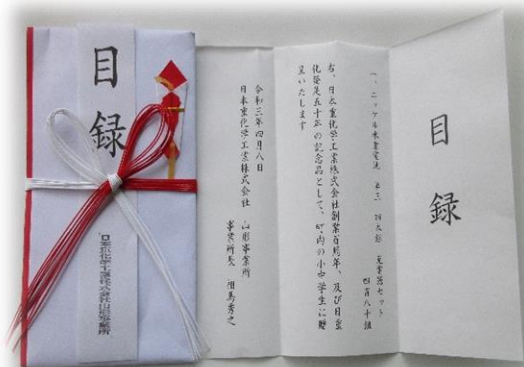 目録
日本重化学工業株式会社山形事業所
目録
一、ニッケル水素電池 単三 四本 充電器セット
四百八十組
右、日本重化学工業株式会社創業百周年、及び日重
化発足五十年の記念品として、町内の小中学生に贈
呈いたします
令和三年四月八日
日本重化学工業株式会社 山形事業所
事業所長 相馬秀之